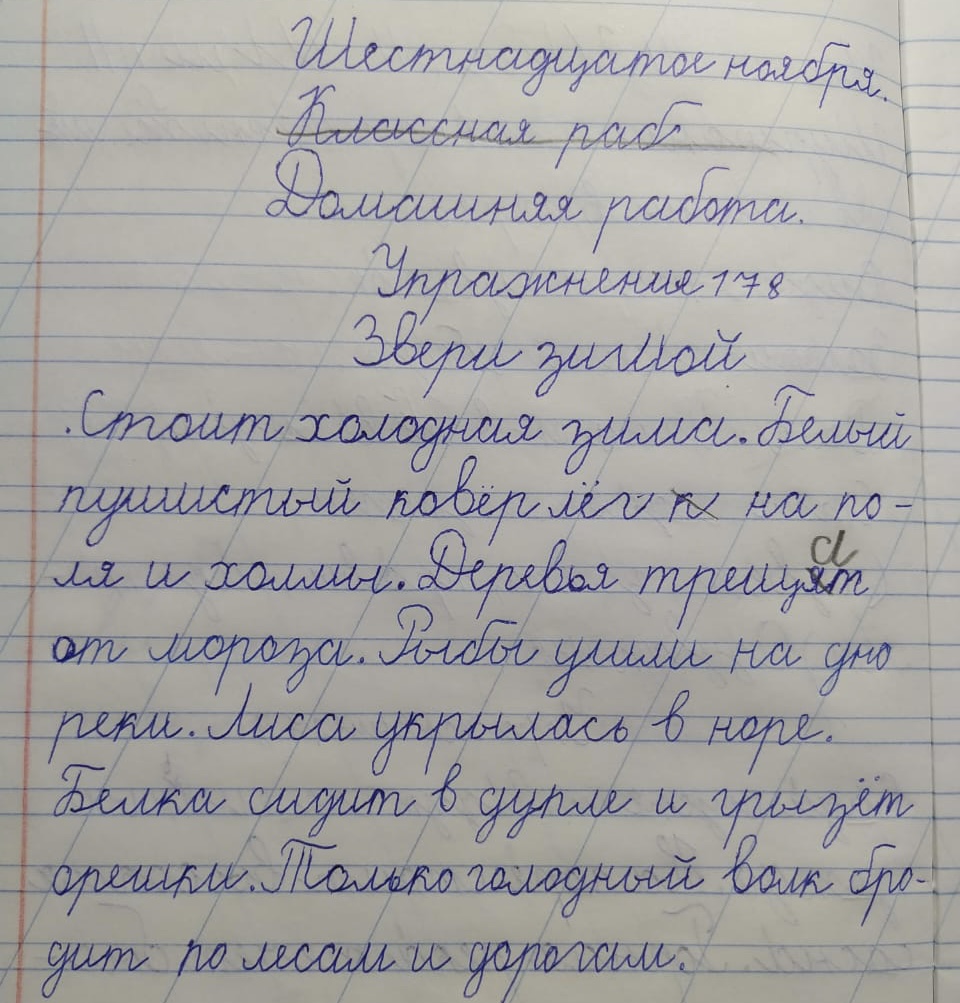 Шестнадцатое ноября.
Классная раб
Домашняя работа.
Упражнения 178
Звери зимой
.Стоит холодная зима. Белый
пушистый ковёр лёг на по-
ля и холмы. Деревья трещат
от мороза. Рыбы ушли на дно
реки. Лиса укрылась в норе.
Белка сидит в дупле и грызёт
орешки. Только голодный волк бро-
дит по лесам и дорогам.